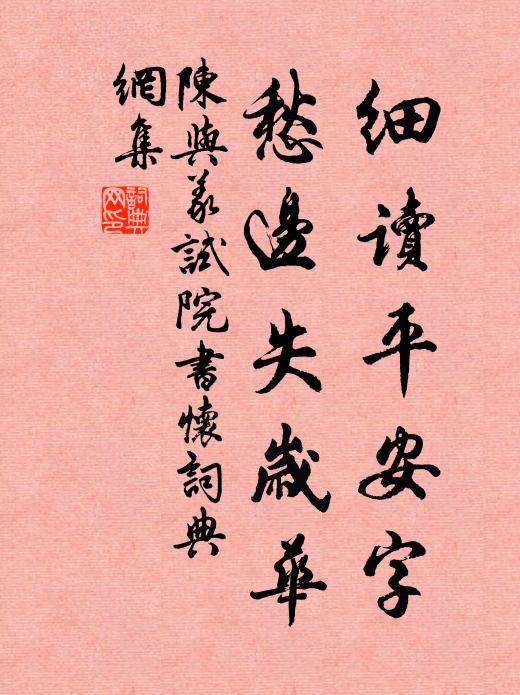 細讀平安字
愁邊失歲華
陳與義試院書懷詞典
網集
詞典
网印